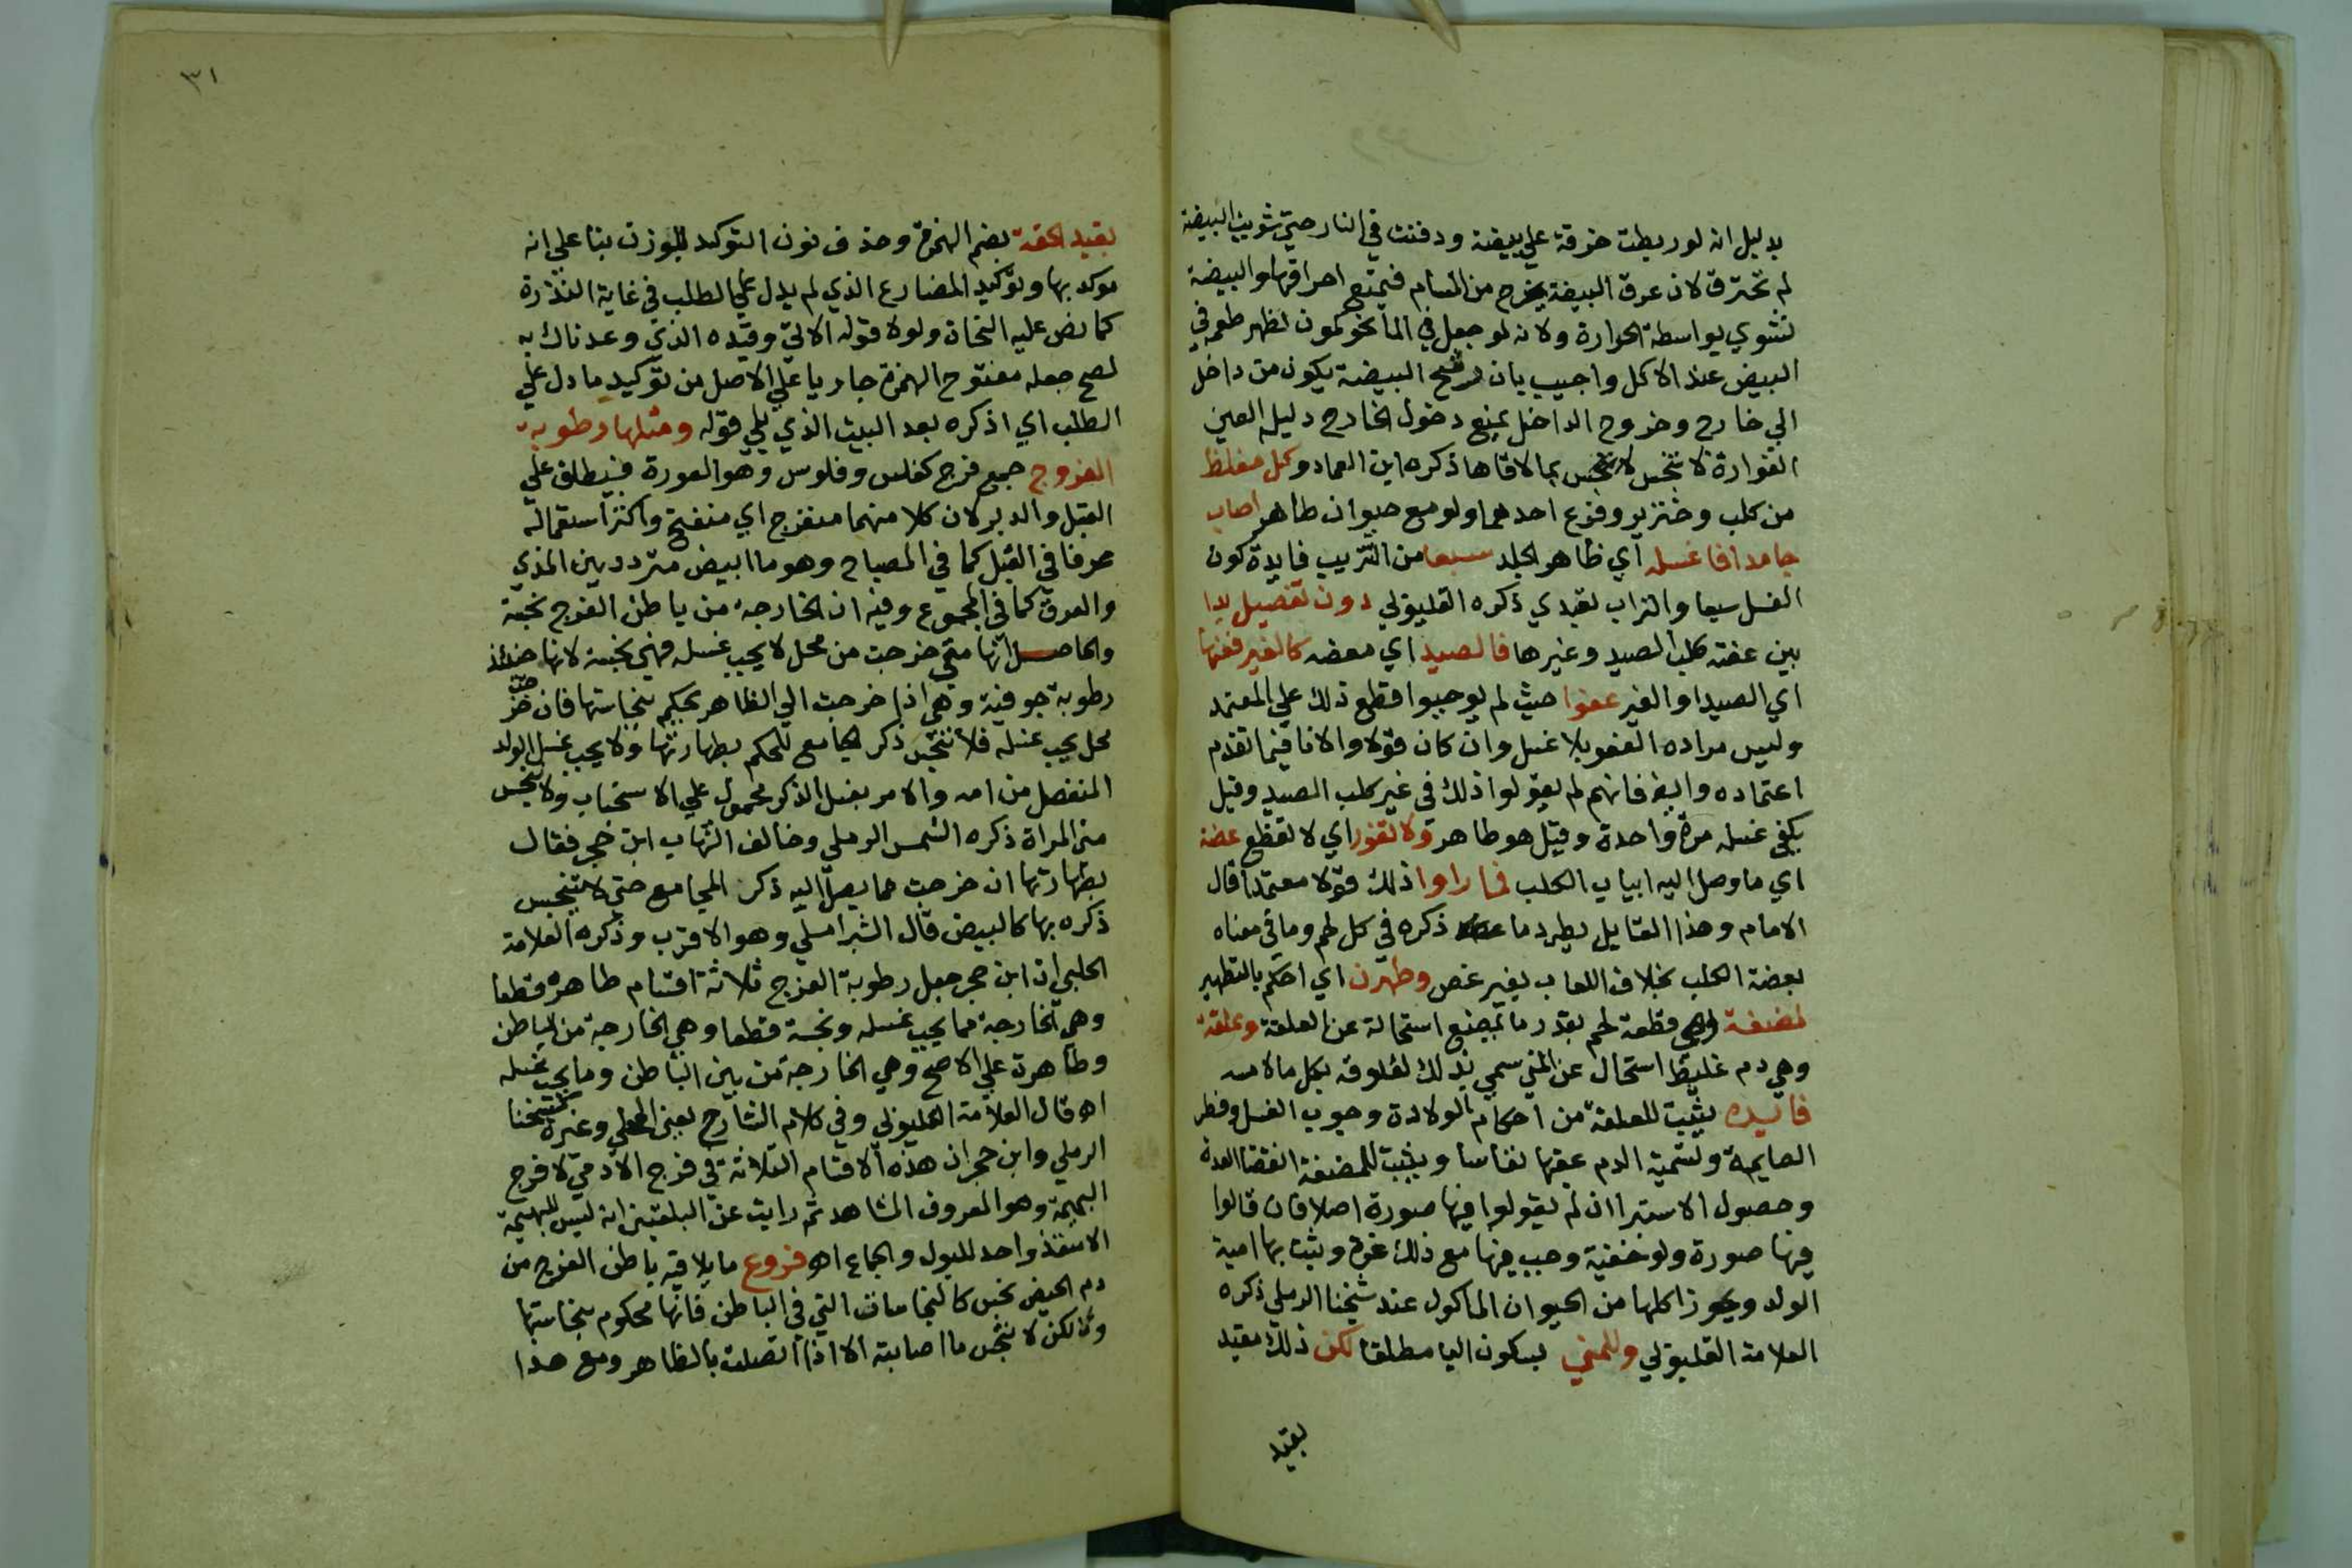 بدليل انه لو ربطت خرقة علي بيضة ودفنت في النار حتي شويت البيضة
لم تحترق لان عرق البيضة يخرج من المسام فيمتنع احراقها والبيضة
تشوي بواسطة الحرارة ولانه لو جعل في الما نحو كمون لظهر طعمه في
البيض عند الاكل واجيب بان رشح البيضة يكون من داخل
الي خارج وخروج الداخل يمنع دخول الخارج دليله العين
الفوارة لا تنجس بما لاقاها ذكره ابن العماد وكل مغلظ
من كلب وخنزير وفرع احدهما ولو مع حيوان طاهر اصاب
جامدا فاغسله اي ظاهر الجلد سبعا من التتريب فايدة كون
الغسل سبعا والتراب تعبدي ذكره القليوبي دون تفصيل بدا
بين عضته كلب الصيد وغيرها فالصيد اي معضه كالغير ففيها
اي الصيد او الغير عفوا حيث لم يوجبوا قطع ذلك علي المعتمد
وليس مراده العفو بلا غسل وان كان قولا والا نافي ما تقدم
اعتماده وايضا فانهم لم يقولوا ذلك في غير كلب الصيد وقيل
يكفي غسله مرة واحدة وقيل هو طاهر ولا تقور اي لا تقطع عضه
اي ما وصل اليه انياب الكلب فما راوا ذلك قولا معتمدا قال
الامام وهذا القايل يطرد ما ذكره في كل لحم وما في معناه
بعضة الكلب بخلاف اللعاب بغير عض وطهرن اي احكم بالتطهير
لمضغة وهي قطعة لحم بقدر ما يمضغ استحالة عن العلقة وعلقة
وهي دم غليظ استحال عن المني سمي بذلك لعلوقه بكل ما لامسه
فايده يثبت للعلقة من احكام الولادة وجوب الغسل وفطر
الصايمة وتسمية الدم عقبها نفاسا ويثبت للمضغة انقضا العدة
وحصول الاستبرا ان لم يقولوا فيها صورة اصلا فان قالوا
فيها صورة ولو خفية وجب فيها مع ذلك غرة ويثبت بها امية
الولد ويجوز اكلها من الحيوان الماكول عند شيخنا الرملي ذكره
العلامة القليوبي وللمني بسكون اليا مطلقا لكن ذلك مقيد
بقيد
٣١
بقيد احقة بضم الهمزة وحذف نون التوكيد للوزن بنا علي انه
موكد بها وتوكيد المضارع الذي لم يدل علي الطلب في غاية الندرة
كما نص عليه النحاة ولولا قوله الاتي وقيده الذي وعدناك به
لصح جعله مفتوح الهمزة جاريا علي الاصل من توكيد ما دل علي
الطلب اي اذكره بعد البيت الذي يلي قوله ومثلها رطوبة
الفروج جمع فرج كفلس وفلوس وهو العورة فيطلق علي
القبل والدبر لان كلا منهما منفرج اي منفتح واكثر استعماله
عرفا في القبل كما في المصباح وهو ما ابيض متردد بين المذي
والعرق كما في المجموع وفيه ان الخارجة من باطن الفرج نجسة
والحاصل انها متي خرجت من محل لا يجب غسله فهي نجسة لانها حينئذ
رطوبة جوفية وهي اذا خرجت الي الظاهر يحكم بنجاستها فان خرجت من
محل يجب غسله فلا تنجس ذكر المجامع للحكم بطهارتها ولا يجب غسل الولد
المنفصل من امه والامر بغسل الذكر محمول علي الاستحباب ولا تنجس
مني المراة ذكره الشمس الرملي وخالف الشهاب ابن حجر فقال
بطهارتها ان خرجت مما يصل اليه ذكر المجامع حتي لا يتنجس
ذكره بها كالبيض قال الشبراملسي وهو الاقرب وذكره العلامة
الحلبي ان ابن حجر جعل رطوبة الفرج ثلاثة اقسام طاهرة قطعا
وهي الخارجة مما يجب غسله ونجسة قطعا وهي الخارجة من الباطن
وطاهرة علي الاصح وهي الخارجة من بين الباطن وما يجب غسله
اه قال العلامة القليوبي وفي كلام الشارح يعني المحلي وغيره كشيخنا
الرملي وابن حجر ان هذه الاقسام الثلاثة في فرج الادمي لا فرج
البهيمة وهو المعروف المشاهد ثم رايت عن البلقيني انه ليس للبهيمة
الا منفذ واحد للبول والجماع اه فروع ما يلاقيه باطن الفرج من
دم الحيض نجس كالنجاسات التي في الباطن فانها محكوم بنجاستها
ولكن لا تنجس ما اصابته الا اذا اتصلت بالظاهر ومع هذا